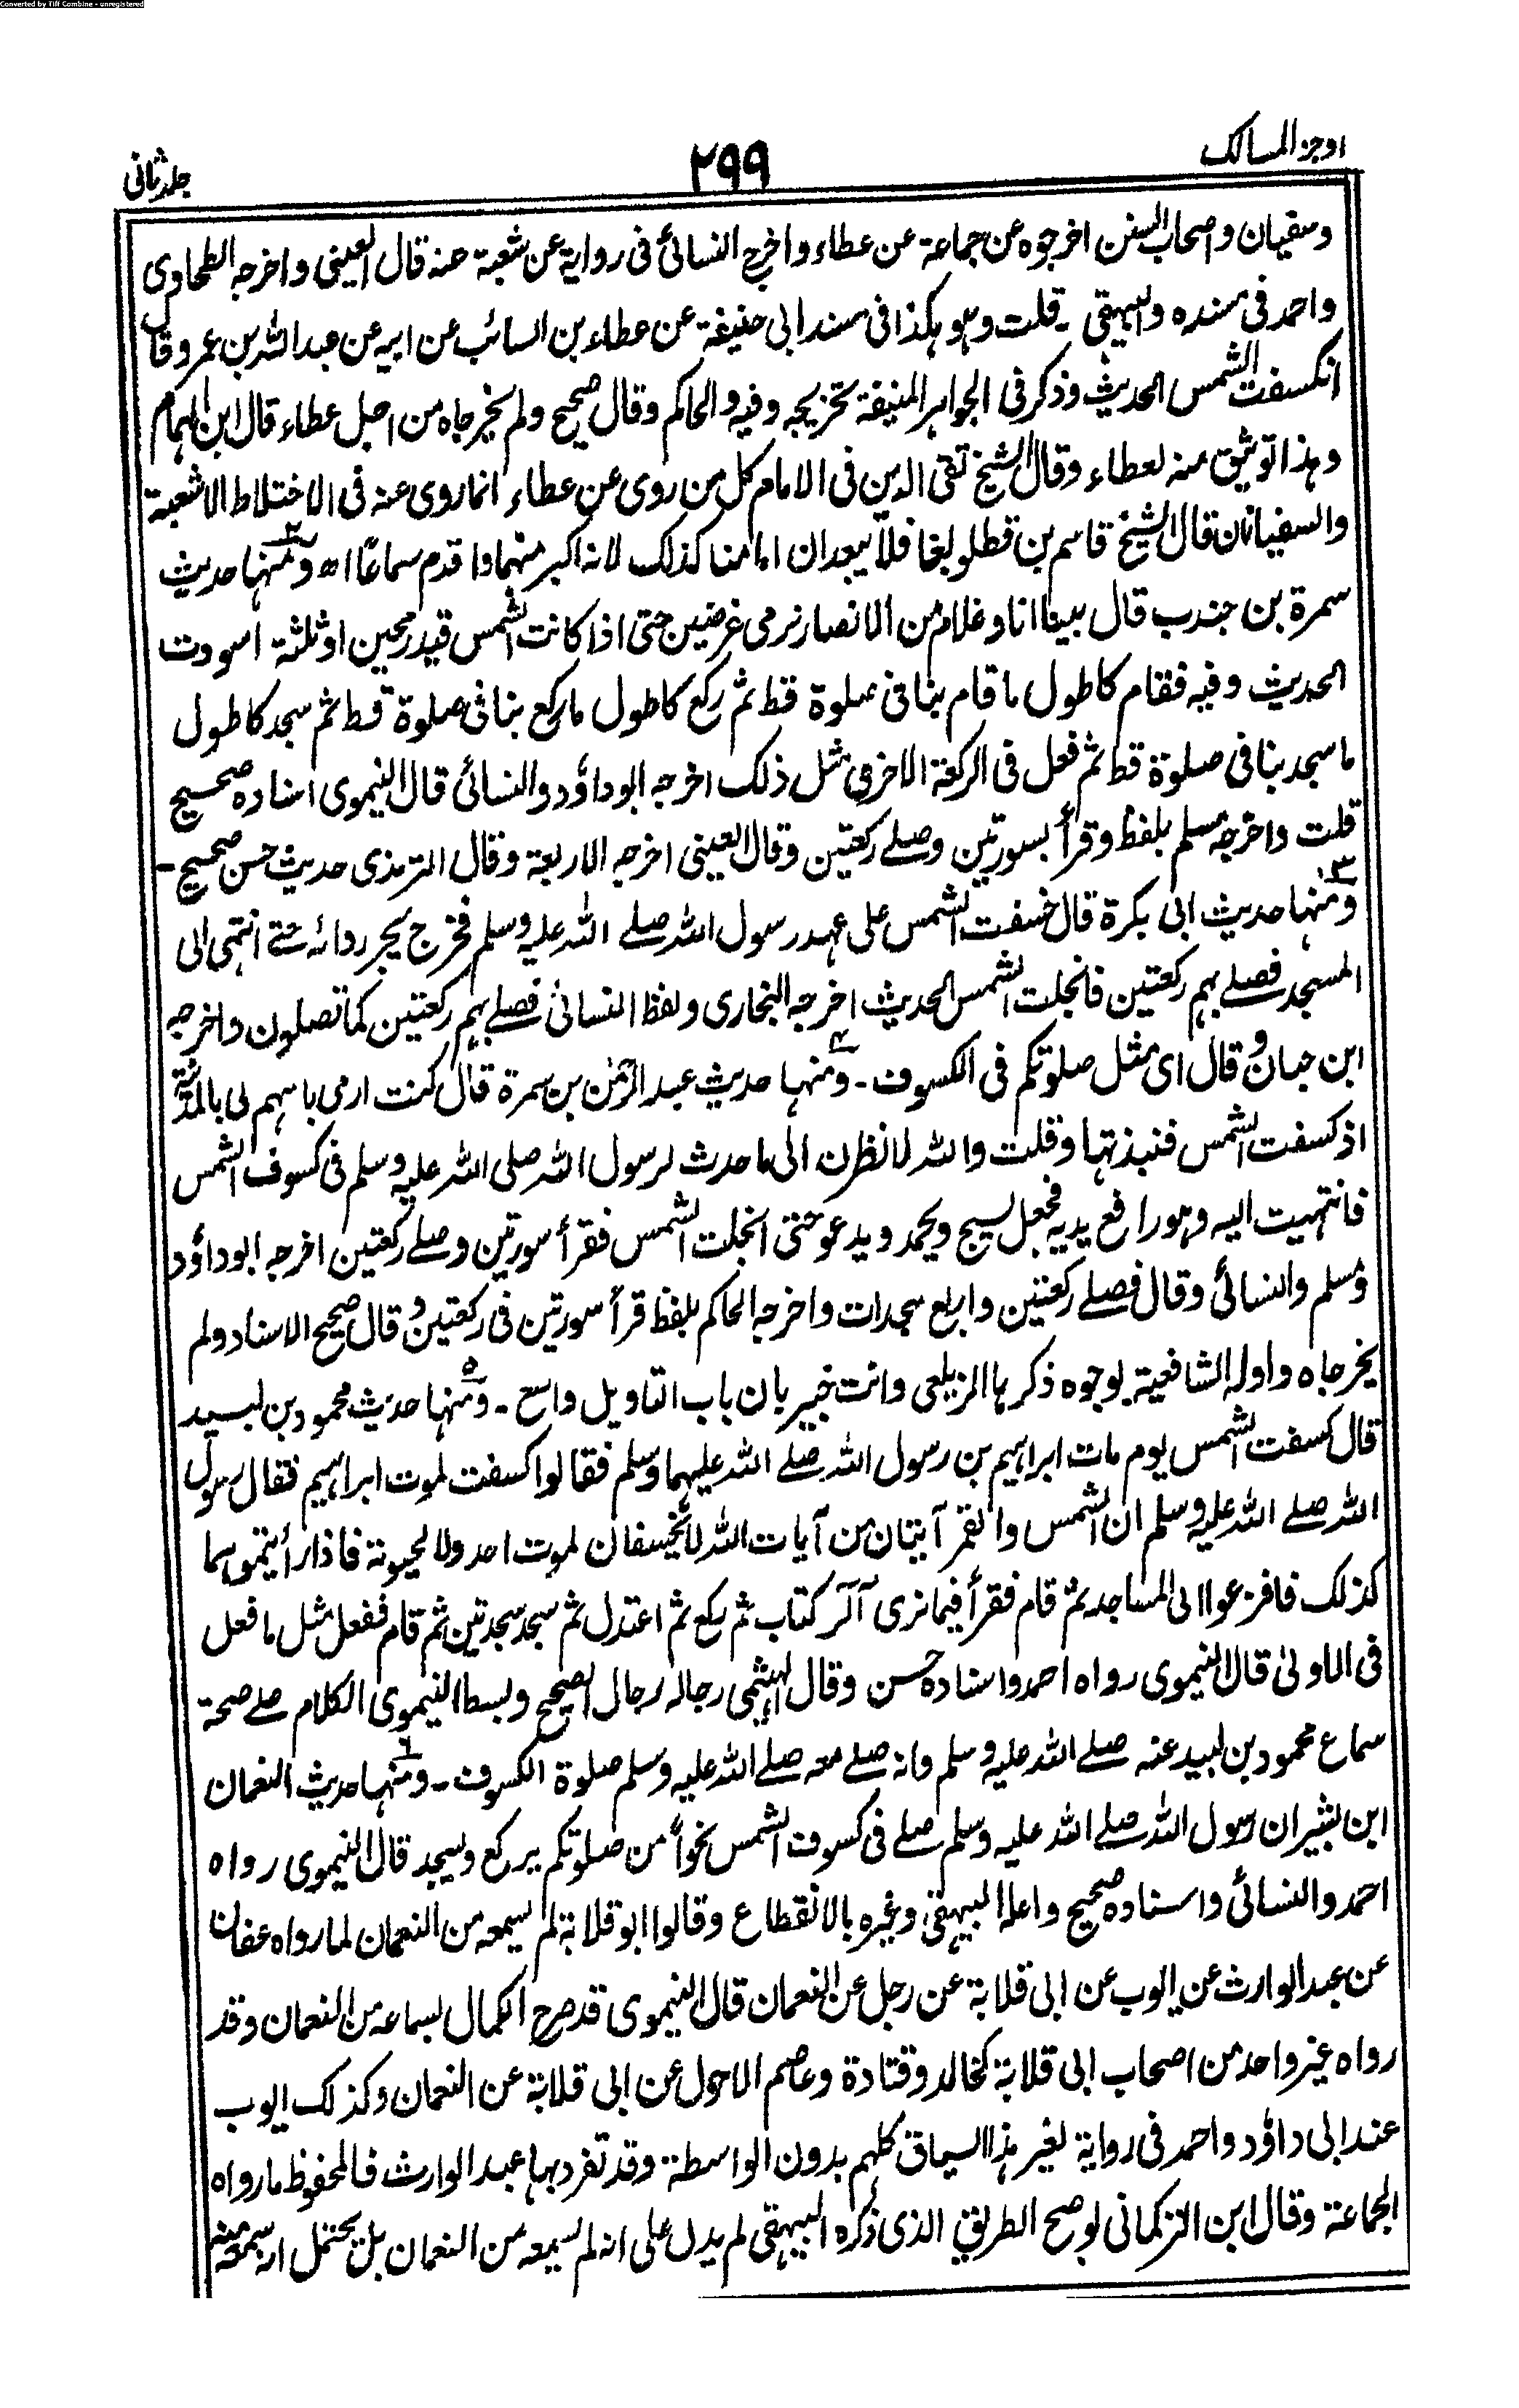 Converted by Tiff Combine - unregistered
اوجز المسالك
٢٩٩
جلد ثانی
وسفيان واصحاب السنن اخرجوه عن جماعة عن عطاء واخرج النسائی فی رواية عن شعبة عنه قال العينی واخرجه الطحاوی
واحمد فی مسنده والبيهقی ۔ قلت وهو هكذا فی مسند ابی حنيفة عن عطاء بن السائب عن ابيه عن عبد الله بن عمرو قال
انكسفت الشمس الحديث وذكر فی الجواهر المنيفة تخريجه وفيه والحاكم وقال صحيح ولم يخرجاه من اجل عطاء قال ابن الهمام
وهذا توثيق منه لعطاء وقال الشيخ تقی الدين فی الامام كل من روی عن عطاء انما روی عنه فی الاختلاط الا شعبة
والسفيانان قال الشيخ قاسم بن قطلوبغا فلا يبعد ان امامنا كذلك لانه اكبر منهما واقدم سماعًا اھ ٢ ومنها حديث
سمرة بن جندب قال بينا انا وغلام من الانصار نرمی غرضين حتی اذا كانت الشمس قيد رمحين او ثلثة اسودت
الحديث وفيه فقام كاطول ما قام بنا فی صلوة قط ثم ركع كاطول ما ركع بنا فی صلوة قط ثم سجد كاطول
ما سجد بنا فی صلوة قط ثم فعل فی الركعة الاخری مثل ذلك اخرجه ابو داؤد والنسائی قال النيموی اسناده صحيح
قلت واخرجه مسلم بلفظ وقرأ بسورتين وصلے ركعتين وقال العينی اخرجه الاربعة وقال الترمذی حديث حسن صحيح ۔
٣ ومنها حديث ابی بكرة قال خسفت الشمس علی عهد رسول الله صلے الله عليه وسلم فخرج يجر ردائه حتے انتهی الی
المسجد فصلے بهم ركعتين فانجلت الشمس الحديث اخرجه البخاری ولفظ النسائی فصلے بهم ركعتين كما تصلون واخرجه
ابن حبان وقال ای مثل صلوتكم فی الكسوف ۔ ٤ ومنها حديث عبد الرحمن بن سمرة قال كنت ارمی باسهم لی بالمدينة
اذ كسفت الشمس فنبذتها وقلت والله لانظرن الی ما حدث لرسول الله صلی الله عليه وسلم فی كسوف الشمس
فانتهيت اليه وهو رافع يديه فجعل يسبح ويحمد ويدعو حتی انجلت الشمس فقرأ سورتين وصلے ركعتين اخرجه ابو داؤد
ومسلم والنسائی وقال فصلے ركعتين واربع سجدات واخرجه الحاكم بلفظ قرأ سورتين فی ركعتين وقال صحيح الاسناد ولم
يخرجاه واوله الشافعية بوجوه ذكرها الزيلعی وانت خبير بان باب التاويل واسع ۔ ٥ ومنها حديث محمود بن لبيد
قال كسفت الشمس يوم مات ابراهيم بن رسول الله صلے الله عليهما وسلم فقالوا كسفت لموت ابراهيم فقال رسول
الله صلے الله عليه وسلم ان الشمس والقمر آيتان من آيات الله لا يخسفان لموت احد ولا لحيوته فاذا رأيتموهما
كذلك فافزعوا الی المساجد ثم قام فقرأ فيما نری آلر كتاب ثم ركع ثم اعتدل ثم سجد سجدتين ثم قام ففعل مثل ما فعل
فی الاولی قال النيموی رواه احمد واسناده حسن وقال الهيثمی رجاله رجال الصحيح وبسط النيموی الكلام علے صحة
سماع محمود بن لبيد عنه صلے الله عليه وسلم وانه صلے معه صلے الله عليه وسلم صلوة الكسوف ۔ ٦ ومنها حديث النعمان
ابن بشير ان رسول الله صلے الله عليه وسلم صلے فی كسوف الشمس نحوًا من صلوتكم يركع ويسجد قال النيموی رواه
احمد والنسائی واسناده صحيح واعله البيهقی وغيره بالانقطاع وقالوا ابو قلابة لم يسمعه من النعمان لما رواه عفان
عن عبد الوارث عن ايوب عن ابی قلابة عن رجل عن النعمان قال النيموی قد صرح الكمال بسماعه من النعمان وقد
رواه غير واحد من اصحاب ابی قلابة كخالد وقتادة وعاصم الاحول عن ابی قلابة عن النعمان وكذلك ايوب
عند ابی داؤد واحمد فی رواية لغير هذا السياق كلهم بدون الواسطة وقد تفرد بها عبد الوارث فالمحفوظ ما رواه
الجماعة وقال ابن التركمانی لو صح الطريق الذی ذكره البيهقی لم يدل علی انه لم يسمعه من النعمان بل يحتمل انه سمعه منه